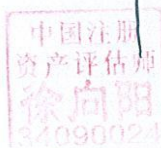 中国注册
资产评估师
徐向阳
34090024